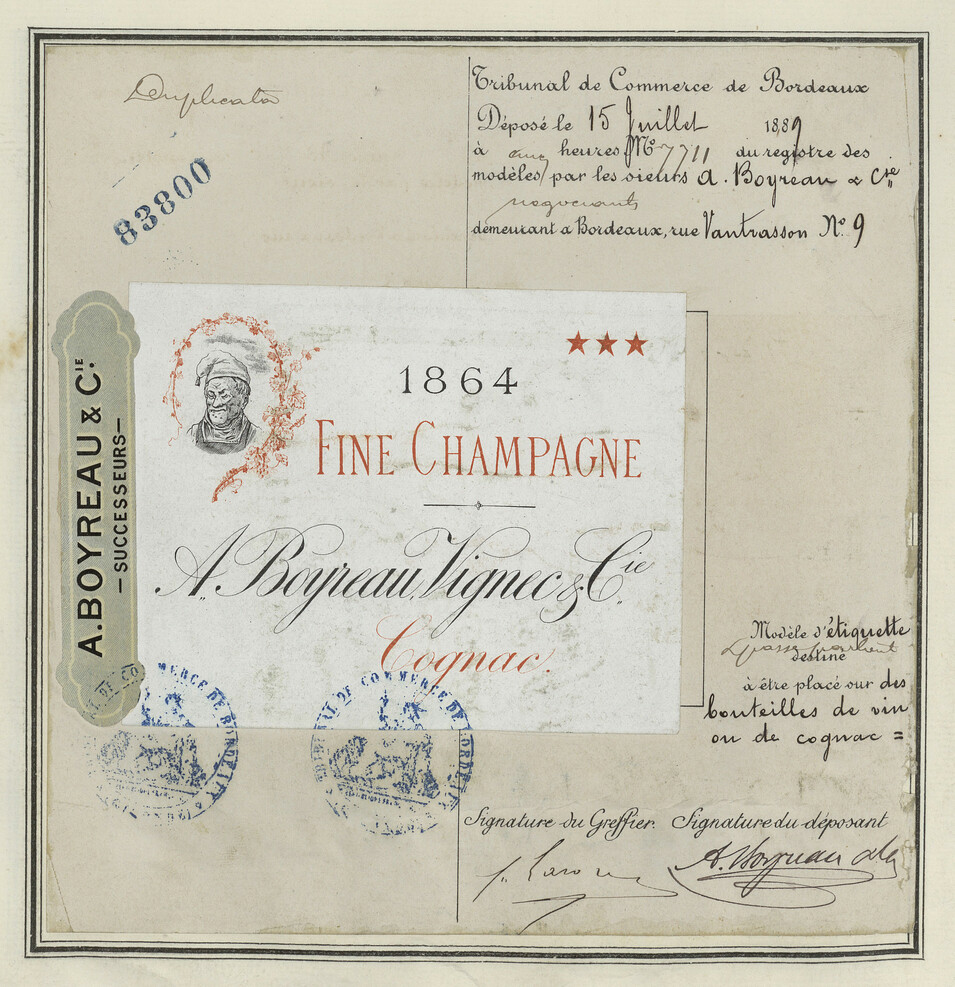 Duplicata
83800
Tribunal de Commerce de Bordeaux
Déposé le 15 Juillet 1889
à cinq heures Nº 7711 du registre des
modèles par les sieurs A. Boyreau & Cie
négociants
demeurant à Bordeaux, rue Vantrasson Nº 9
A. BOYREAU & CIE
—SUCCESSEURS—
★★★
1864
FINE CHAMPAGNE
A. Boyreau, Vignec & Cie
Cognac.
Modèle d'étiquette
destiné
à être placé sur des
bouteilles de vin
ou de cognac =
TRIBUNAL DE COMMERCE DE BORDEAUX
Signature du Greffier. Signature du déposant
A. Boyreau & Cie